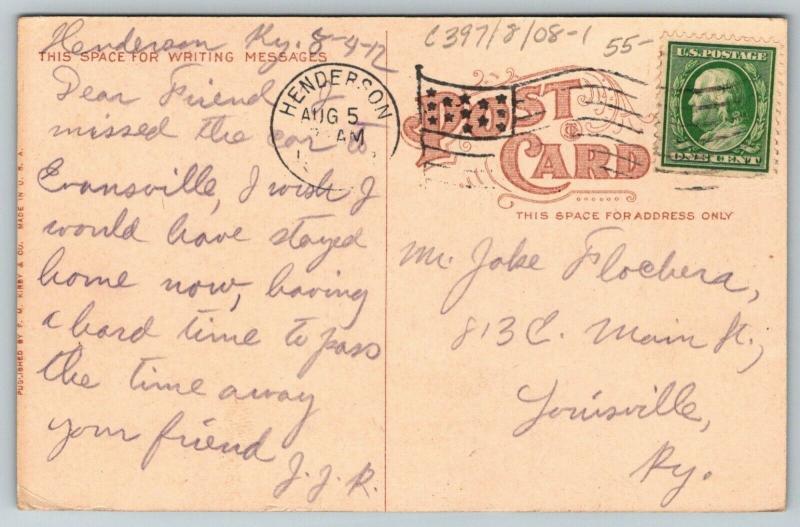 Henderson Ky. 8-4-12
THIS SPACE FOR WRITING MESSAGES
Dear Friend I
missed the car to
Evansville, I wish I
would have stayed
home now, having
a hard time to pass
the time away
your friend
J.J.R.
PUBLISHED BY F. M. KIRBY & CO. MADE IN U. S. A.
C397/8/08-1
55-
HENDERSON
AUG 5
AM
U.S. POSTAGE
ONE CENT
POST
CARD
THIS SPACE FOR ADDRESS ONLY
Mr. Jake Flochera,
813 E. Main St.,
Louisville,
Ky.